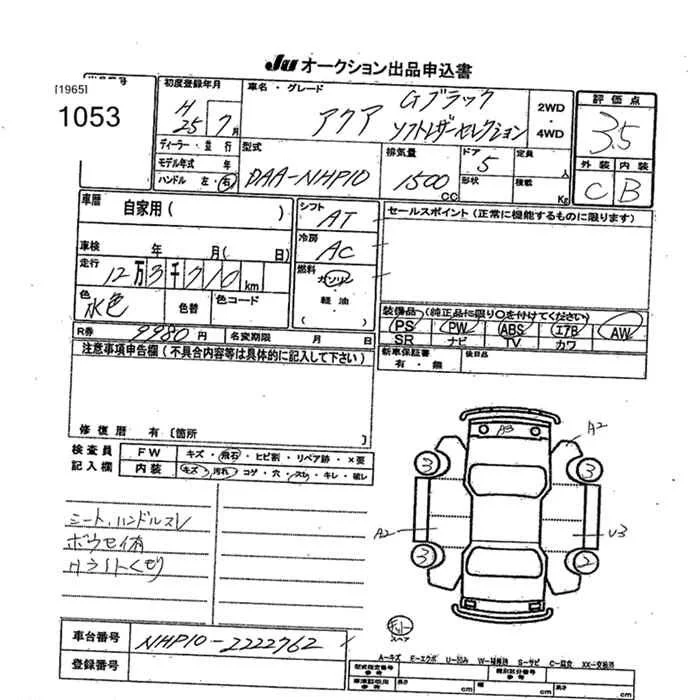 JU オークション出品申込書
[1965]
1053
初度登録年月
H 25 7月
車名・グレード
アクア Gブラック
ソフトレザーセレクション
2WD
・
4WD
評価点
3.5
外装 内装
C B
ディーラー・並行
モデル年式 年
ハンドル 左・右
型式
DAA-NHP10
排気量
1500 CC
ドア 5
形状
定員 人
積載 Kg
車歴
自家用( )
車検 年 月( 日)
走行
12万3千710km
色
水色
色替
色コード
シフト
AT
冷房
AC
燃料
ガソリン
軽油
( )
セールスポイント(正常に機能するものに限ります)
装備品(純正品に限り○を付けてください)
PS PW ABS エアB AW
SR ナビ TV カワ
新車保証書 後日品
有・無
R券 9980円 名変期限 月 日
注意事項申告欄(不具合内容等は具体的に記入して下さい)
修復歴 有〔箇所 〕
検査員
記入欄
FW キズ・飛石・ヒビ割・リペア跡・×要
内装 キズ・汚れ・コゲ・穴・スレ・キレ・破レ
シート、ハンドルスレ
ボウセイ有
Hライトくもり
A3
A2
3
3
A2
U3
3
2
スペア
車台番号 NHP10-2222762
登録番号
A-キズ E-エクボ U-凹み W-補修跡 S-サビ C-腐食 XX-交換済
型式指定番号
参考
類別区分番号
参考
車検証取用
参考
長さ cm
幅 cm
高さ cm